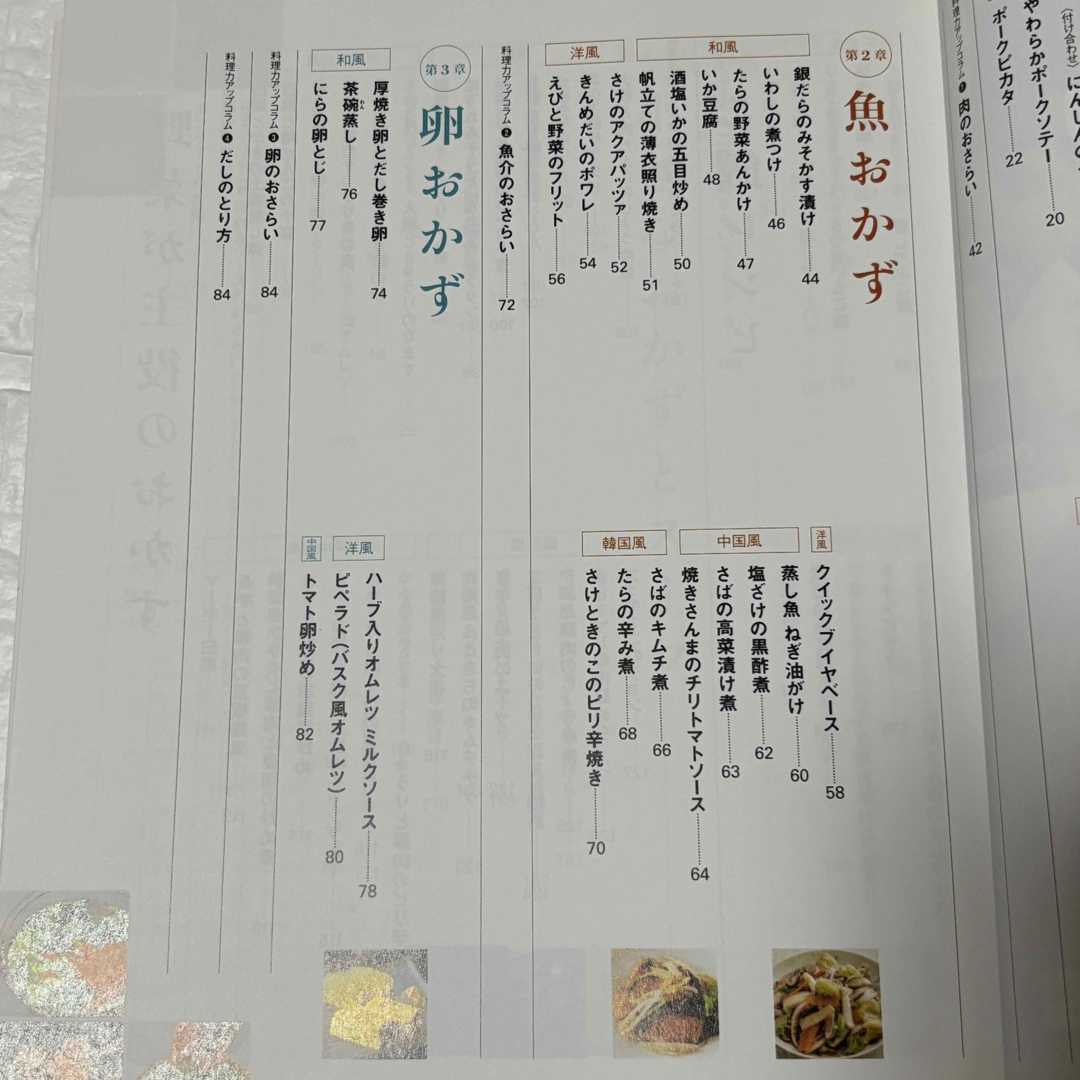 〈付け合わせ〉にんじんの
やわらかポークソテー……20
ポークピカタ……22
料理力アップコラム❶ 肉のおさらい……42
第2章
魚おかず
和風
銀だらのみそかす漬け……44
いわしの煮つけ……46
たらの野菜あんかけ……47
いか豆腐……48
酒塩いかの五目炒め……50
帆立ての薄衣照り焼き……51
洋風
さけのアクアパッツァ……52
きんめだいのポワレ……54
えびと野菜のフリット……56
洋風
クイックブイヤベース……58
中国風
蒸し魚 ねぎ油がけ……60
塩ざけの黒酢煮……62
さばの高菜漬け煮……63
焼きさんまのチリトマトソース……64
韓国風
さばのキムチ煮……66
たらの辛み煮……68
さけときのこのピリ辛焼き……70
料理力アップコラム❷ 魚介のおさらい……72
第3章
卵おかず
和風
厚焼き卵とだし巻き卵……74
茶碗蒸し……76
にらの卵とじ……77
洋風
ハーブ入りオムレツ ミルクソース……78
ピペラド（バスク風オムレツ）……80
中国風
トマト卵炒め……82
料理力アップコラム❸ 卵のおさらい……84
料理力アップコラム❹ だしのとり方……84